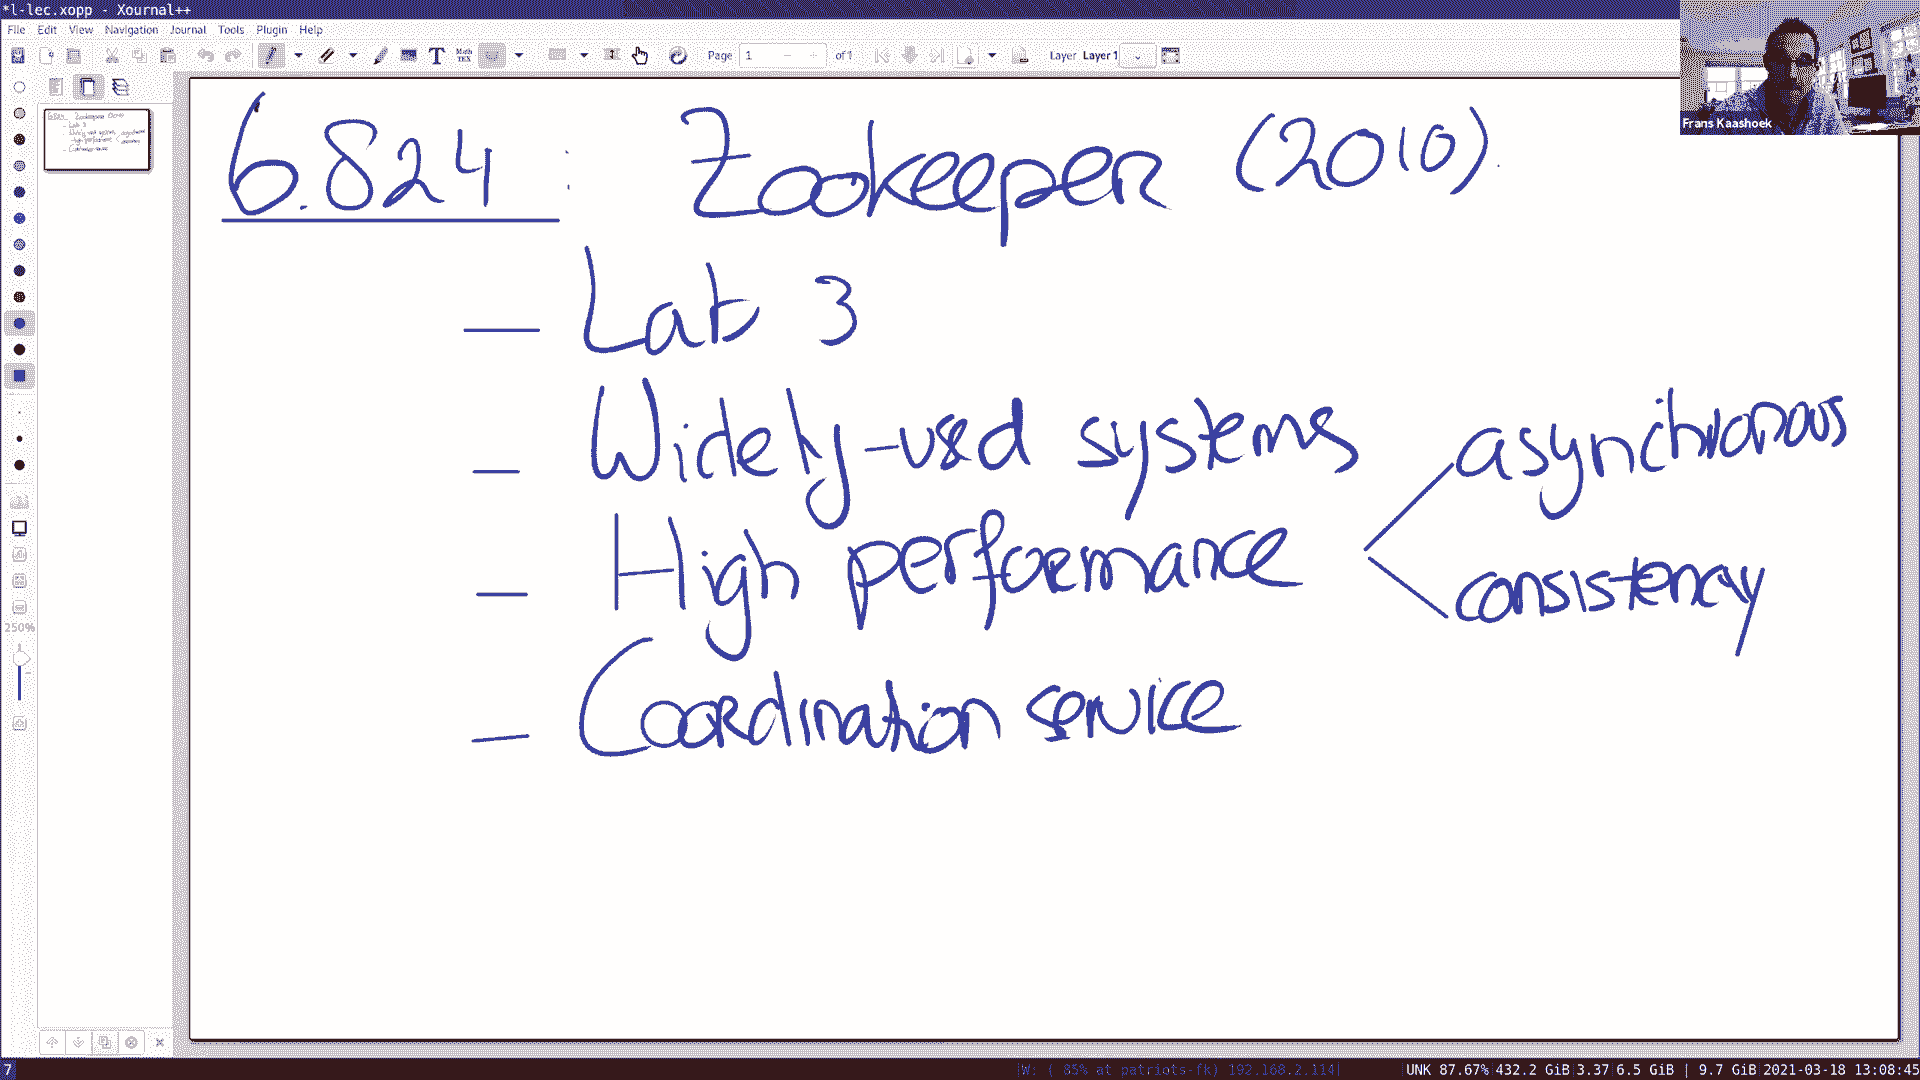 *l-lec.xopp - Xournal++
File Edit View Navigation Journal Tools Plugin Help
Page 1 of 1 Layer Layer 1
Frans Kaashoek
6.824 : Zookeeper (2010).
— Lab 3
— Widely-used systems
asynchronous
— High performance
consistency
— Coordination service
250%
7 |W: ( 85% at patriots-fk) 192.168.2.114| UNK 87.67% 432.2 GiB 3.37 6.5 GiB | 9.7 GiB 2021-03-18 13:08:45